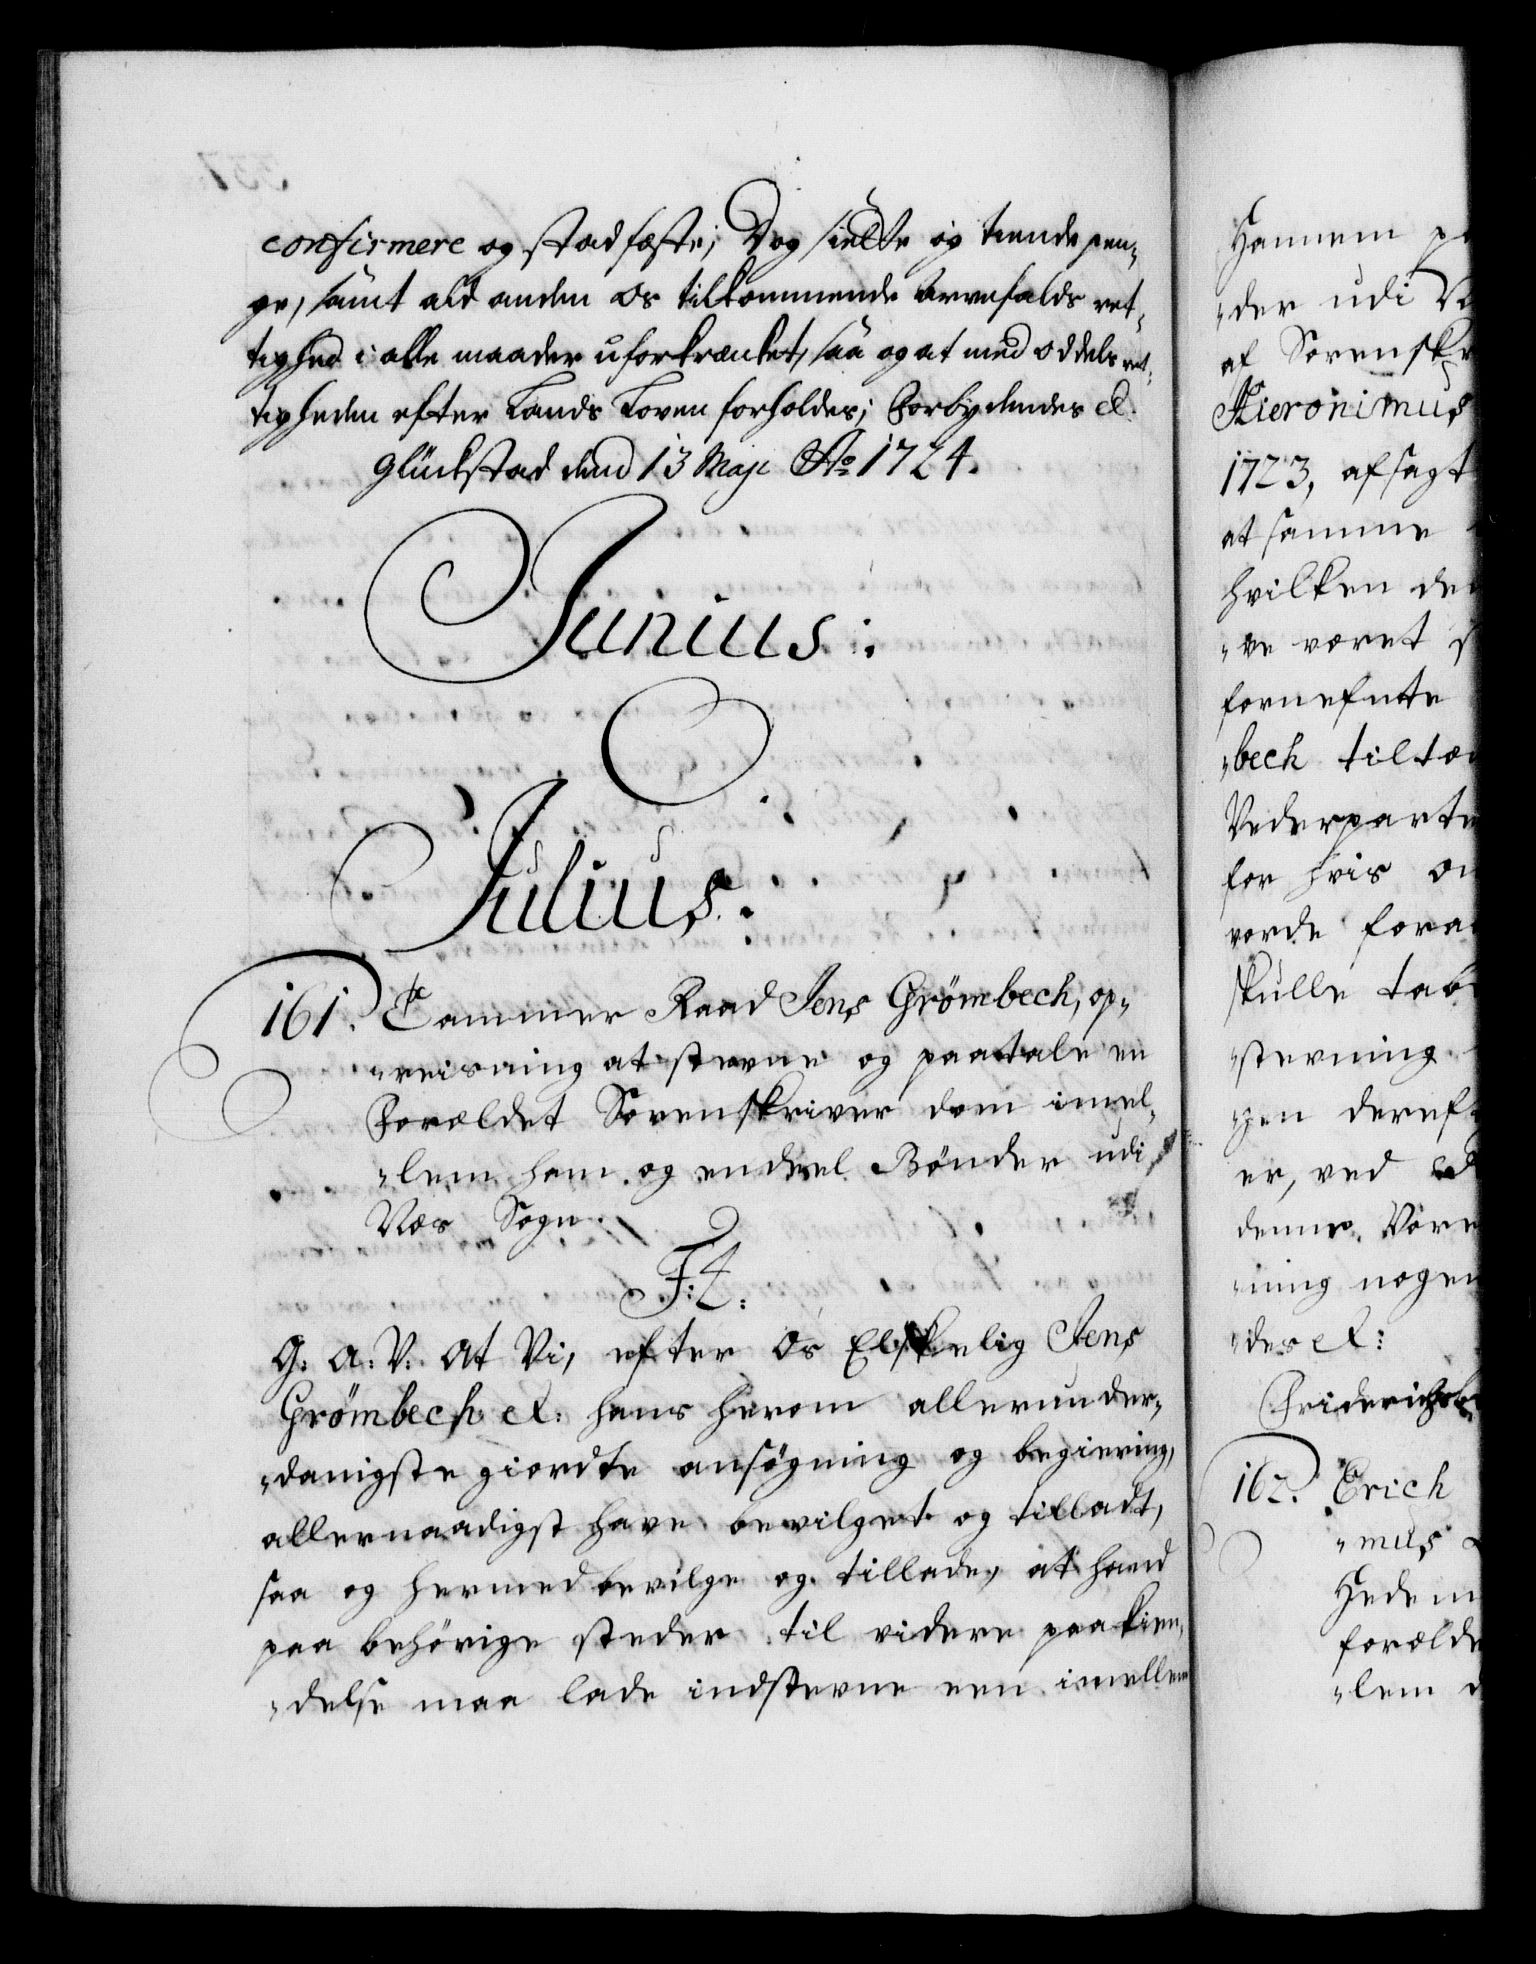 confirmere og stadfæste; Dog siette og tiende pen„
ge, samt ald anden os tilkommende Arvefalds ret„
tighed i alle maader uforkrænket, saa og at med oddels ret„
tigheden efter Lands Loven forholdes; Forbydendes et.
Glückstad dend 13 Maji Ao 1724.
Junius:
Julius:
161. Cammer Raad Jens Grömbech, op„
„reisning at stevne og paatale en
Forældet Sorenskriver dom imel„
„lem ham og endeel Bønder udi
Næs Sogn.
F: 4.
G: A: V: At Vi, efter Os Elskelig Jens
Grömbech et: hans herom allerunder„
„danigste giordte ansøgning og begiering,
allernaadigst have bevilget og tilladt,
saa og hermed bevilge og tillade, at hand
paa behörige steder til videre paakien„
„delse maa lade indstevne een imellem
Hannem
„der udi
af Sorenskr
Hieronimus
1723, afsagt
at samme
hvilken de
„ve været
fornefnte
„beck tiltæ
Vederparte
for hvis
vorde fora
skulle tab
„stevning
„gen dereft
er, ved
denne Vore
„ning nogen
„des et:
Friderichsb
162. Erich
„mus
Hedem
forælde
„lem